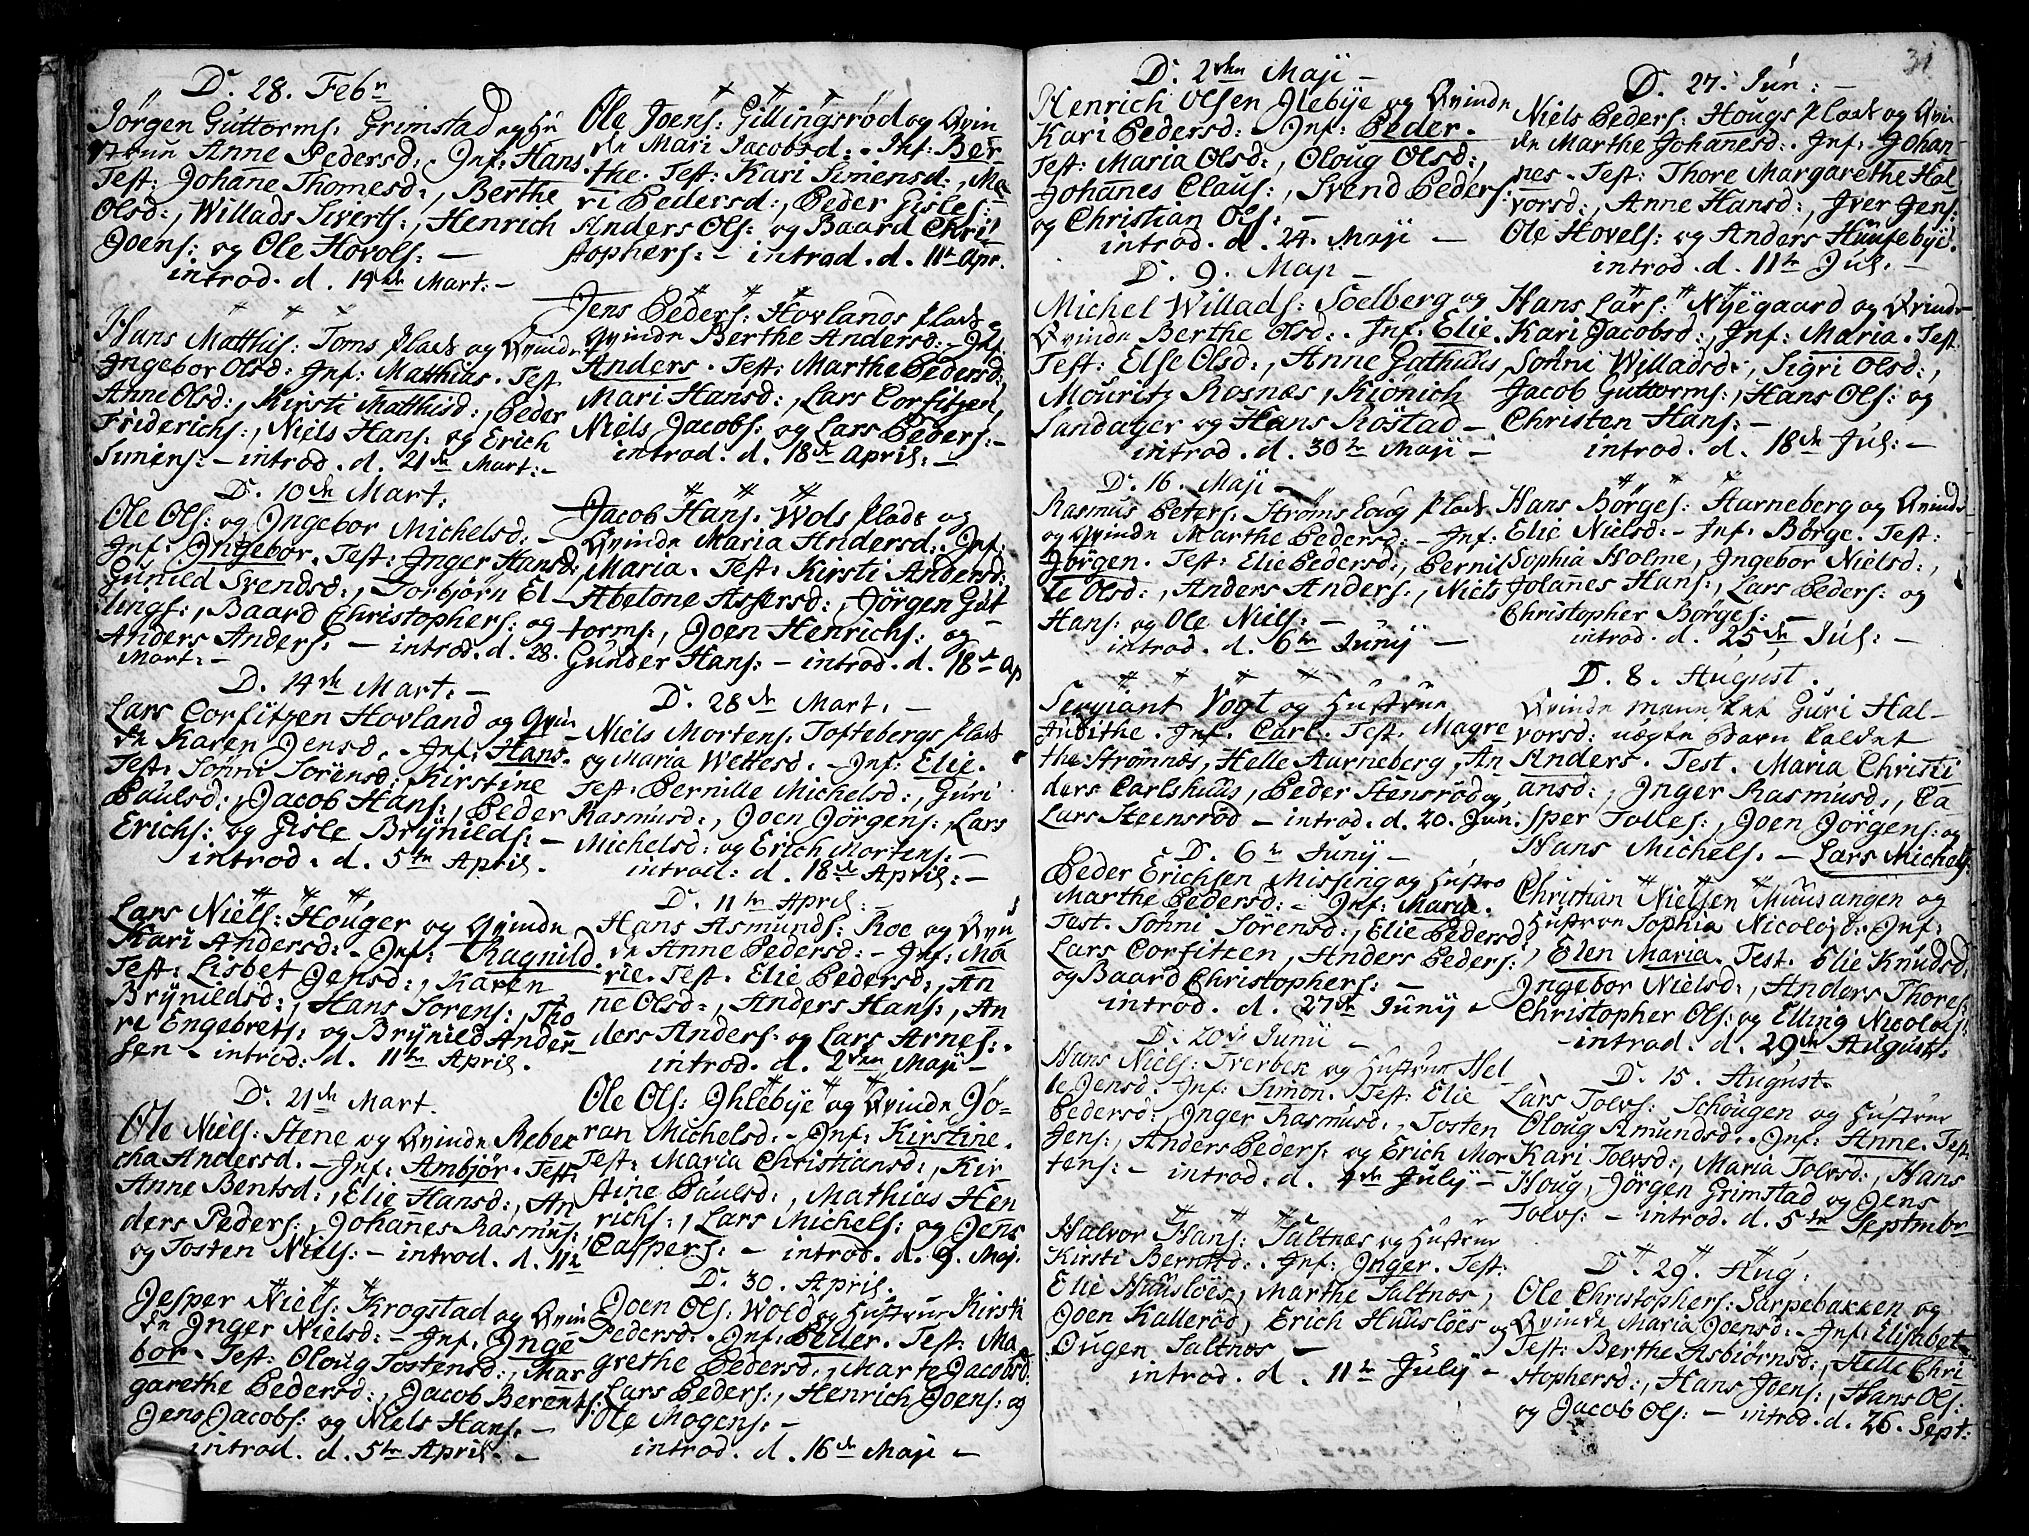 31
D. 28. Febr
Jørgen Guttorms: Grimstad og Hu
struu Anne Pedersd: Inf: Hans.
Test: Johane Thomesd:, Berthe
Olsd:, Willads Siverts:, Henrich
Joens: og Ole Hovols: —
introd. d. 14de Mart: —
Hans Matthis: Toms plads og Qvinde
Ingebor Olsd: Inf: Matthias. Test
Anne Olsd:, Kirsti Matthisd:, Peder
Friderichs:, Niels Hans: og Erich
Simens: — introd. d. 21de Mart: —
D. 10de Mart.
Ole Ols: og Ingebor Michelsd: —
Inf: Ingebor. Test: Inger Hansd:
Gunild Svendsd:, Torbjørn El-
lings:, Baard Christophers: og
Anders Anders: — introd. d. 28.
Mart: —
D. 14de Mart: —
Lars Corfitzen Hovland og Qvin
de Karen Jensd. — Inf: Hans.
Test: Sønni Sørensd: Kirstine
Paulsd:, Jacob Hans:, Peder
Erichs: og Gisle Brynilds: —
introd. d. 5te April.
Lars Niels: Houger og Qvinde
Kari Andersd: — Inf: Ragnild.
Test: Lisbet Jensd:, Karen
Brynildsd:, Hans Sørens:, Tho
re Engebrets: og Brynild Ander
sen — introd: d. 11te April.
D. 21de Mart.
Ole Niels: Stene og Qvinde Rebec
cha Andersd. — Inf: Ambjør. Test:
Anne Bentsd:, Elie Hansd:, An
ders Peders:, Johanes Rasmus:,
og Tosten Niels: — introd. d. 11te
Jesper Niels: Krogstad og Qvin
de Inger Nielsd: — Inf: Inge
bor. Test: Oloug Tostensd:, Mar
garethe Pedersd:, Jacob Berents:
Jens Jacobs: og Niels Hans: —
introd. d. 5te April: —
Ole Joens: Gillingsrød og Qvin
de Mari Jacobsd: Inf: Ber
the. Test: Kari Simensd:, Ma
ri Pedersd:, Peder Gisles:
Anders Ols: og Baard Chri
stophers: — introd. d. 11te Apr.
Jens Peders: Hovlands plads og
Qvinde Berthe Andersd: Inf
Anders. Test: Marthe Pedersd:
Mari Hansd:, Lars Corfitzen,
Niels Jacobs: og Lars Peders: —
introd. d. 18de April: —
Jacob Hans. Wols plads og
Qvinde Maria Andersd: Inf:
Maria. Test: Kirsti Andersd:
Abelone Assersd:, Jørgen Gut
torms:, Joen Henrichs: og
Gunder Hans: — introd. d. 18de Ap
D. 28de Mart. —
Niels Mortens: Toftebergs plads
og Maria Wettesd. — Inf: Elie.
Test: Pernille Michelsd:, Guri
Rasmusd:, Joen Jørgens:, Lars
Michelsd: og Erich Mortens: —
introd: d. 18de April: —
D. 11te April:
Hans Asmunds: Roe og Qvin
de Anne Pedersd: — Inf: Ma
rie. Test: Elie Pedersd:, An
ne Olsd:, Anders Hans:, An
ders Anders: og Lars Arnes:.
introd: d. 2den Maji —
Ole Ols: Ihlebye og Qvinde Jø-
ran Michelsd: — Inf: Kirstine.
Test: Maria Christiansd:, Kir
stine Paulsd:, Mathias Hen
richs:, Lars Michels: og Jens
Caspers: — introd. d. 9. Maj.
D. 30. April.
Joen Ols: Wold og Hustrue Kirsti
Pedersd. Inf: Peder. Test: Ma
grethe Pedersd:, Marte Jacobsd
Lars Peders:, Henrich Joens: og
Ole Mogens: —
introd. d. 16de Maji —
D. 2den Maji —
Henrich Olsen Ilebye og Qvinde
Kari Pedersd: — Inf: Peder.
Test: Maria Olsd:, Oloug Olsd:,
Johanes Claus:, Svend Peders:
og Christian Ols: —
introd. d. 24. Maji —
D. 9. Maji —
Michel Willads: Soelberg og
Qvinde Berthe Olsd: Inf. Elie.
Test: Else Olsd:, Anne Gathuus,
Mouritz Rosnæs, Kionich
Sandager og Hans Røstad —
introd. d. 30te Maji —
D. 16. Maji —
Rasmus Peters: Strømshoug plads
og Qvinde Marthe Pedersd: — Inf:
Jørgen. Test: Elie Pedersd:, Pernil
le Olsd:, Anders Anders:, Niels
Hans: og Ole Niels: —
introd. d. 6te Junij —
Sergiant Vogt og Hustrue
Judithe. Inf. Carl. Test. Magre
the Strømnæs, Helle Aurneberg, An
ders Carlshuus, Peder Stensrød og
Lars Steensrød — introd. d. 20. Jun.
D. 6te Junij —
Peder Erichsen Missing og Hustro
Marthe Pedersd: — Inf: Maria.
Test. Sønni Sørensd:, Elie Pedersd:
Lars Corfitzen, Anders Peders:,
og Baard Christophers: —
introd. d. 27de Junij —
D. 20de Junii —
Hans Niels: Tverbek og Hustrue Hel-
le Jensd. Inf: Simon. Test: Elie
Pedersd: Inger Rasmusd:, Tosten
Jens:, Anders Peders: og Erich Mor
tens: — introd. d. 4de Julij —
Halvor Hans: Saltnæs og Hustrue
Kirsti Berntsd:. Inf: Inger. Test:
Elie Huusløes, Marthe Saltnos,
Joen Kallerød, Erich Huusløes og
Ougen Saltnos —
introd. d. 11te Julij —
D. 27. Jun: —
Niels Peders: Hougs plads og Qvin
de Marthe Johanesd:. Inf: Johan-
nes. Test: Thore Margarethe Hal
vorsd:, Anne Hansd:, Iver Jens:
Ole Hovels: og Anders Huusebye.
introd. d. 11te Jul: —
Hans Lars: Nyegaard og Qvinde
Kari Jacobsd: Inf: Maria. Test.
Sønni Willadsd:, Sigri Olsd:,
Jacob Guttorms:, Hans Ols: og
Christen Hans: —
introd. d. 18de Jul: —
Hans Børges: Aurneberg og Qvinde
Elie Nielsd: — Inf: Børge. Test:
Sophia Holme, Ingebor Nielsd:,
Johannes Hans:, Lars Peders: og
Christopher Børges: —
introd. d. 25de Jul: —
D. 8. August.
Qvinde mennsket Guri Hal-
vorsd: uægte Barn kaldet
Anders. Test. Maria Christi
ansd:, Inger Rasmusd:, Ca
sper Tolles:, Joen Jørgens: og
Hans Michels: — Lars Michels
Christian Nielsen Muusangen og
Hustrue Sophia Nicolojd. Inf:
Elen Maria. Test. Elie Knudsd:
Ingebor Nielsd:, Anders Thores:
Christopher Ols: og Elling Nicolois:
introd. d. 29de August.
D. 15. August.
Lars Tolvs: Schougen og Hustrue
Oloug Amundsd. Inf: Anne. Test.
Kari Tolvsd:, Maria Tolvsd:, Hans
Houg, Jørgen Grimstad og Jens
Tolvs: — introd. d. 5te Septmbr
D. 29. Aug:
Ole Christophers: Sarpebakken og
Qvinde Maria Joensd: — Inf: Elisabet
Test: Berthe Asbiørnsd:, Helle Chri
stophersd:, Hans Joens:, Hans Ols:
og Jacob Ols: — introd. d. 26. Sept: